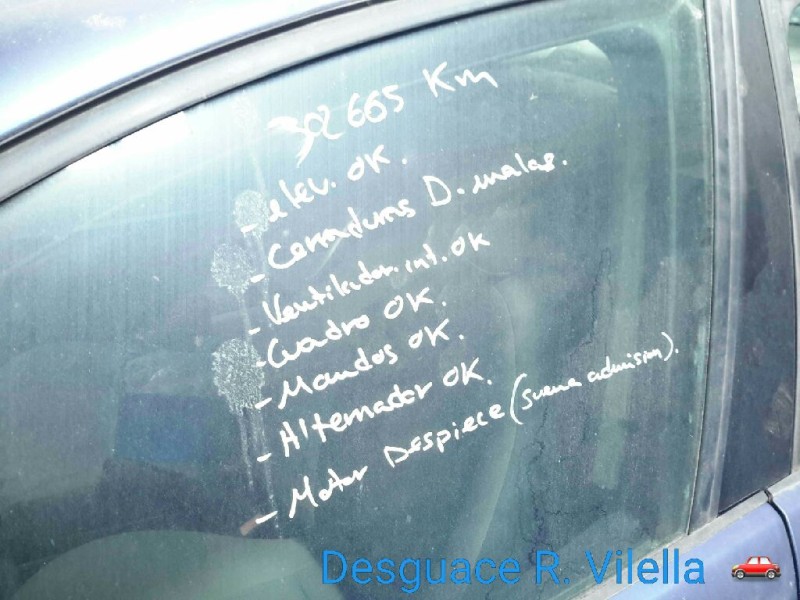 302665 Km
- elev. OK.
- Cerraduras D. malas.
- Ventilador int. OK
- Cuadro OK.
- Mandos OK.
- Alternador OK.
- Motor Despiece (suena admisión).
Desguace R. Vilella